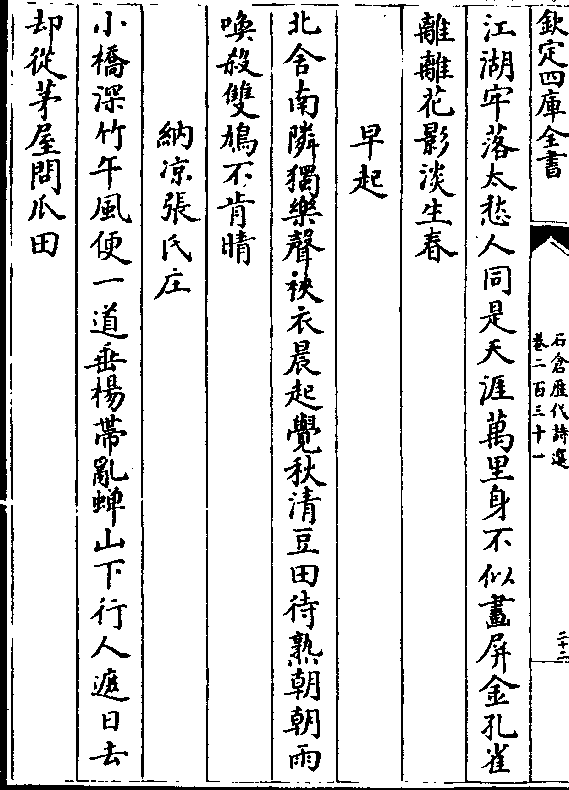 欽定四庫全書
石倉歷代詩選
卷二百三十一
二十二
江湖牢落太愁人同是天涯萬里身不似畫屏金孔雀
離離花影淡生春
早起
北舍南隣獨樂聲裌衣晨起覺秋清豆田待熟朝朝雨
喚殺雙鳩不肯晴
納凉張氏庄
小橋深竹午風便一道垂楊帶亂蟬山下行人遮日去
却從茅屋問瓜田